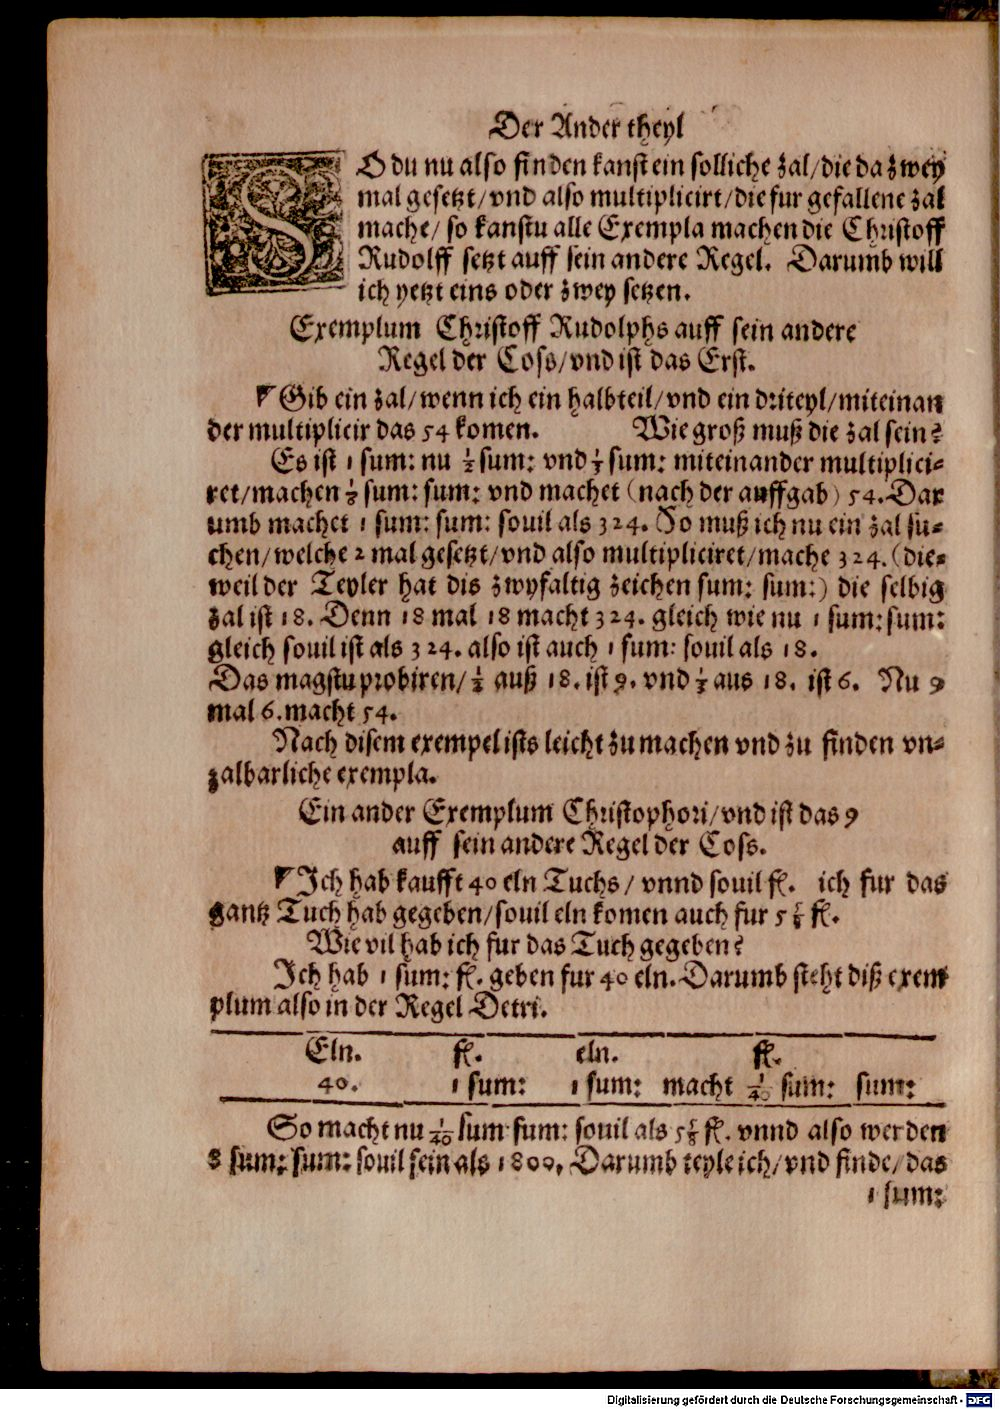 Der Ander theyl
SO du nu also finden kanst ein solliche zal/die da zwey
mal gesetzt/vnd also multiplicirt/die fur gefallene zal
mache/ so kanstu alle Exempla machen die Christoff
Rudolff setzt auff sein andere Regel. Darumb will
ich yetzt eins oder zwey setzen.
Exemplum Christoff Rudolphs auff sein andere
Regel der Coss/vnd ist das Erst.
Gib ein zal/wenn ich ein halbteil/vnd ein driteyl/miteinan
der multiplicir das 54 komen. Wie groß muß die zal sein?
Es ist 1 sum: nu 1/2 sum: vnd 1/3 sum: miteinander multiplici-
ret/machen 1/6 sum: sum: vnd machet (nach der auffgab) 54. Dar
umb machet 1 sum: sum: souil als 324. So muß ich nu ein zal su-
chen/welche 2 mal gesetzt/vnd also multipliciret/mache 324. (die-
weil der Teyler hat dis zwyfaltig zeichen sum: sum:) die selbig
zal ist 18. Denn 18 mal 18 macht 324. gleich wie nu 1 sum: sum:
gleich souil ist als 324. also ist auch 1 sum: souil als 18.
Das magstu probiren/ 1/2 auß 18. ist 9. vnd 1/3 aus 18. ist 6. Nu 9
mal 6. macht 54.
Nach disem exempel ists leicht zu machen vnd zu finden vn-
zalbarliche exempla.
Ein ander Exemplum Christophori/vnd ist das 9
auff sein andere Regel der Coss.
Ich hab kaufft 40 eln Tuchs/ vnnd souil fl. ich fur das
gantz Tuch hab gegeben/souil eln komen auch fur 5 5/8 fl.
Wie vil hab ich fur das Tuch gegeben?
Ich hab 1 sum: fl. geben fur 40 eln. Darumb steht diß exem
plum also in der Regel Detri.
Eln. fl. eln. fl.
40. 1 sum: 1 sum: macht 1/40 sum: sum:
So macht nu 1/40 sum sum: souil als 5 5/8 fl. vnnd also werden
8 sum: sum: souil sein als 1800. Darumb teyle ich/vnd finde/das
1 sum:
Digitalisierung gefördert durch die Deutsche Forschungsgemeinschaft - DFG